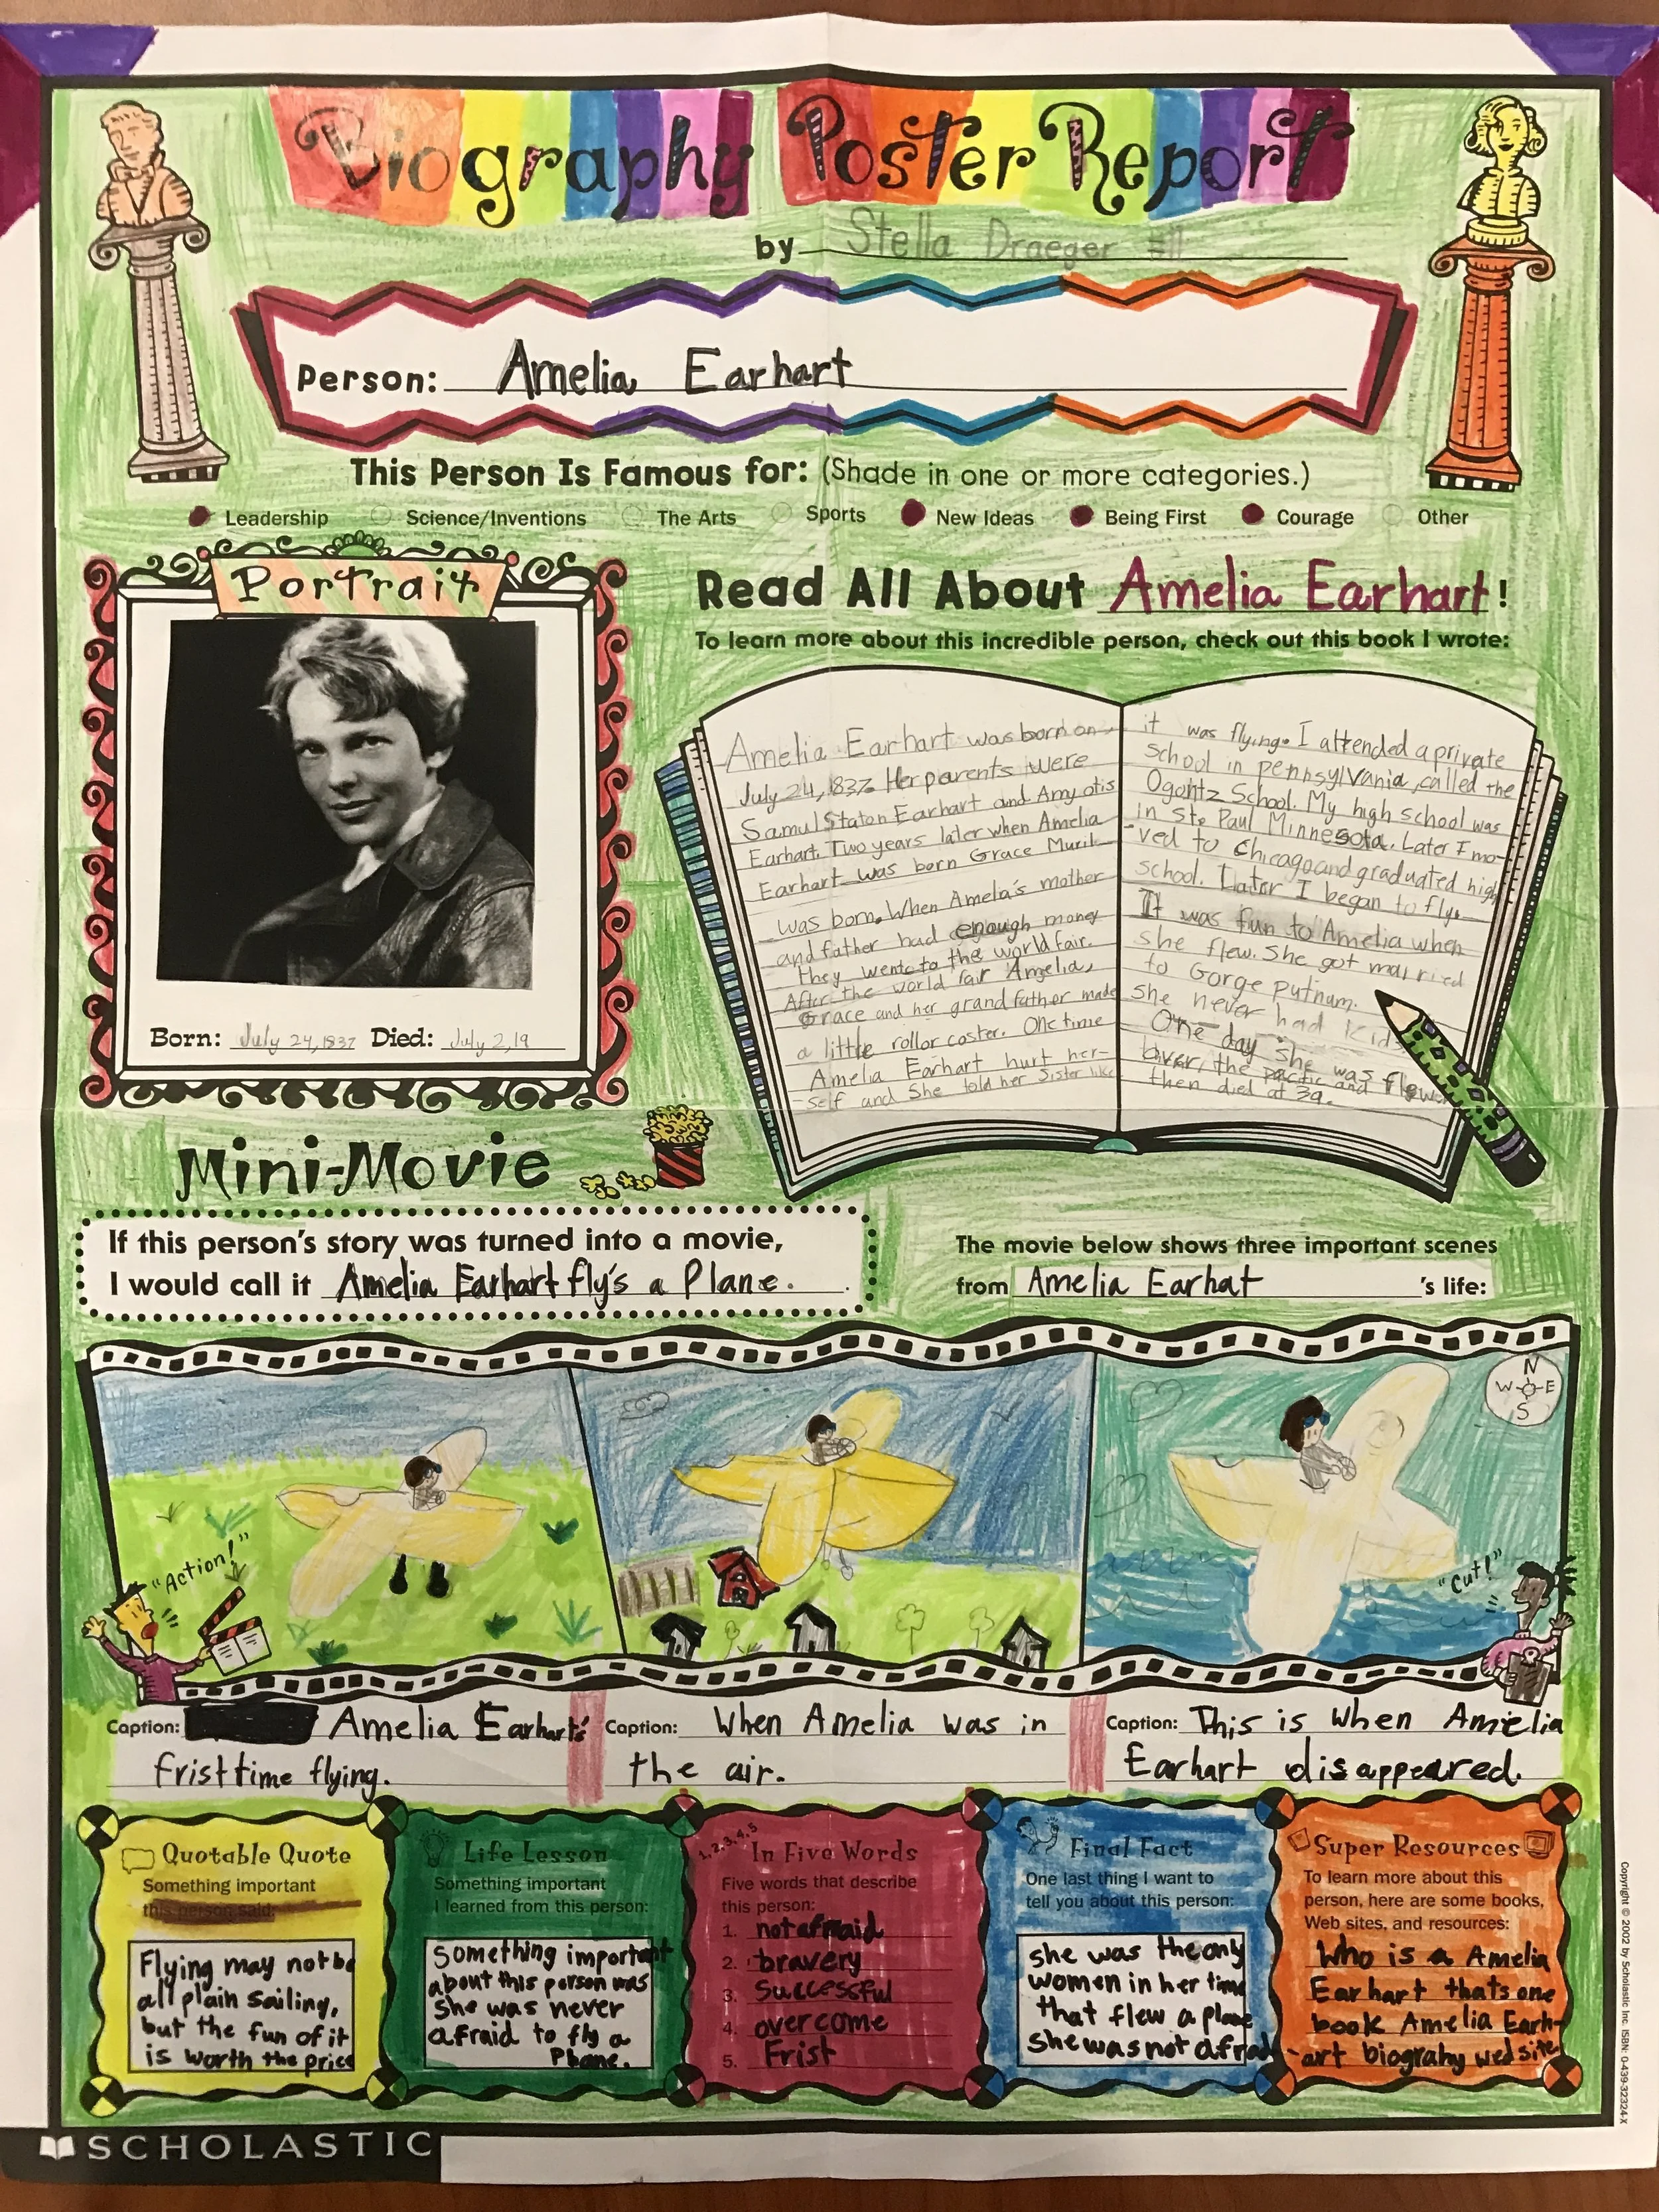 Biography Poster Report
by Stella Draeger #11
Person: Amelia Earhart
This Person Is Famous for: (Shade in one or more categories.)
Leadership Science/Inventions The Arts Sports New Ideas Being First Courage Other
Portrait
Born: July 24, 1837 Died: July 2, 19
Read All About Amelia Earhart!
To learn more about this incredible person, check out this book I wrote:
Amelia Earhart was born on
July 24, 1837. Her parents were
Samul Staton Earhart and Amy otis
Earhart. Two years later when Amelia
Earhart was born Grace Muril
was born. When Amela's mother
and father had enough money
they went to the world fair.
After the world fair Amelia,
Grace and her grandfather made
a little rollor coster. One time
Amelia Earhart hurt her-
-self and She told her Sister like
it was flying. I attended a private
school in pennsylvania, called the
Ogontz School. My high school was
in St. Paul Minnesota. Later I mo-
-ved to Chicago and graduated high
school. Later I began to fly.
It was fun to Amelia when
she flew. She got married
to Gorge Putnum.
she never had kids
One day she was flew
over, the pacific and
then died at 39.
Mini-Movie
If this person's story was turned into a movie,
I would call it Amelia Earhart fly's a Plane.
The movie below shows three important scenes
from Amelia Earhat 's life:
N
W E
S
"Action!"
"Cut!"
Caption: Amelia Earhart's
frist time flying.
Caption: When Amelia was in
the air.
Caption: This is when Amelia
Earhart disappeared.
Quotable Quote
Something important
this person said:
Flying may not be
all plain sailing,
but the fun of it
is worth the price
Life Lesson
Something important
I learned from this person:
Something important
about this person was
She was never
afraid to fly a
Plane.
1, 2, 3, 4, 5
In Five Words
Five words that describe
this person:
1. not afraid
2. bravery
3. Successful
4. overcome
5. Frist
Final Fact
One last thing I want to
tell you about this person:
she was the only
women in her time
that flew a plane
she was not afraid
Super Resources
To learn more about this
person, here are some books,
Web sites, and resources:
Who is a Amelia
Earhart thats one
book Amelia Earh-
-art biograhy wed site
Copyright © 2002 by Scholastic Inc. ISBN: 0-439-32324-X
SCHOLASTIC